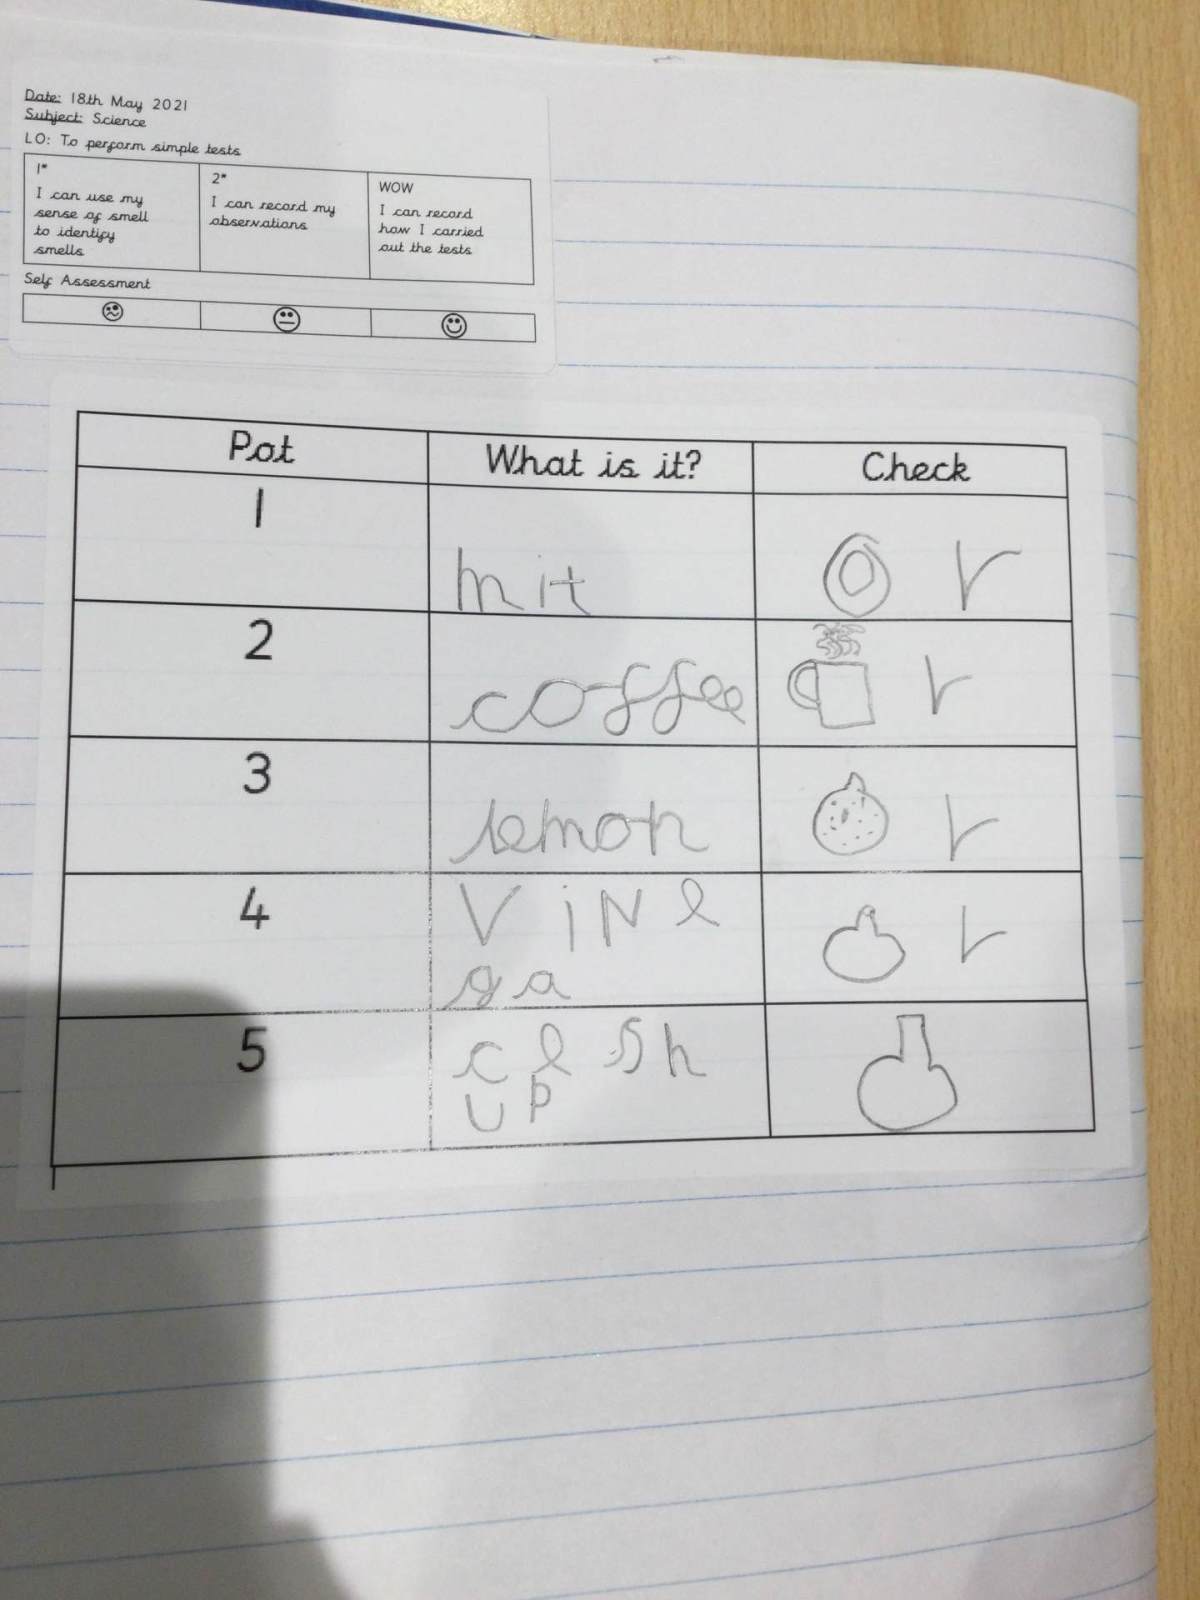 Date: 18th May 2021
Subject: Science
LO: To perform simple tests
1*
I can use my
sense of smell
to identify
smells
2*
I can record my
observations
WOW
I can record
how I carried
out the tests
Self Assessment
Pot What is it? Check
1 mit
2 coffee
3 lemon
4 ViNe
ga
5 ce sh
up